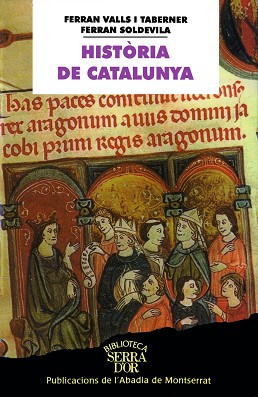 FERRAN VALLS I TABERNER
FERRAN SOLDEVILA
HISTÒRIA
DE CATALUNYA
has paces confirmavit
rex aragonum auus domini ja
cobi primi regis aragonum.
BIBLIOTECA
SERRA
D'OR
Publicacions de l'Abadia de Montserrat